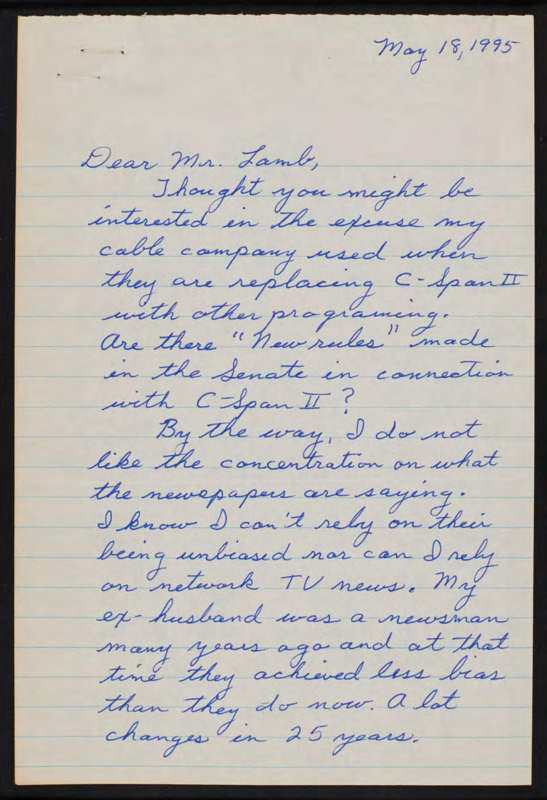 May 18, 1995
Dear Mr. Lamb,
Thought you might be
interested in the excuse my
cable company used when
they are replacing C-Span II
with other programing.
Are there "New rules" made
in the Senate in connection
with C-Span II?
By the way, I do not
like the concentration on what
the newspapers are saying.
I know I can't rely on their
being unbiased nor can I rely
on network TV news. My
ex-husband was a newsman
many years ago and at that
time they achieved less bias
than they do now. A lot
changes in 25 years.